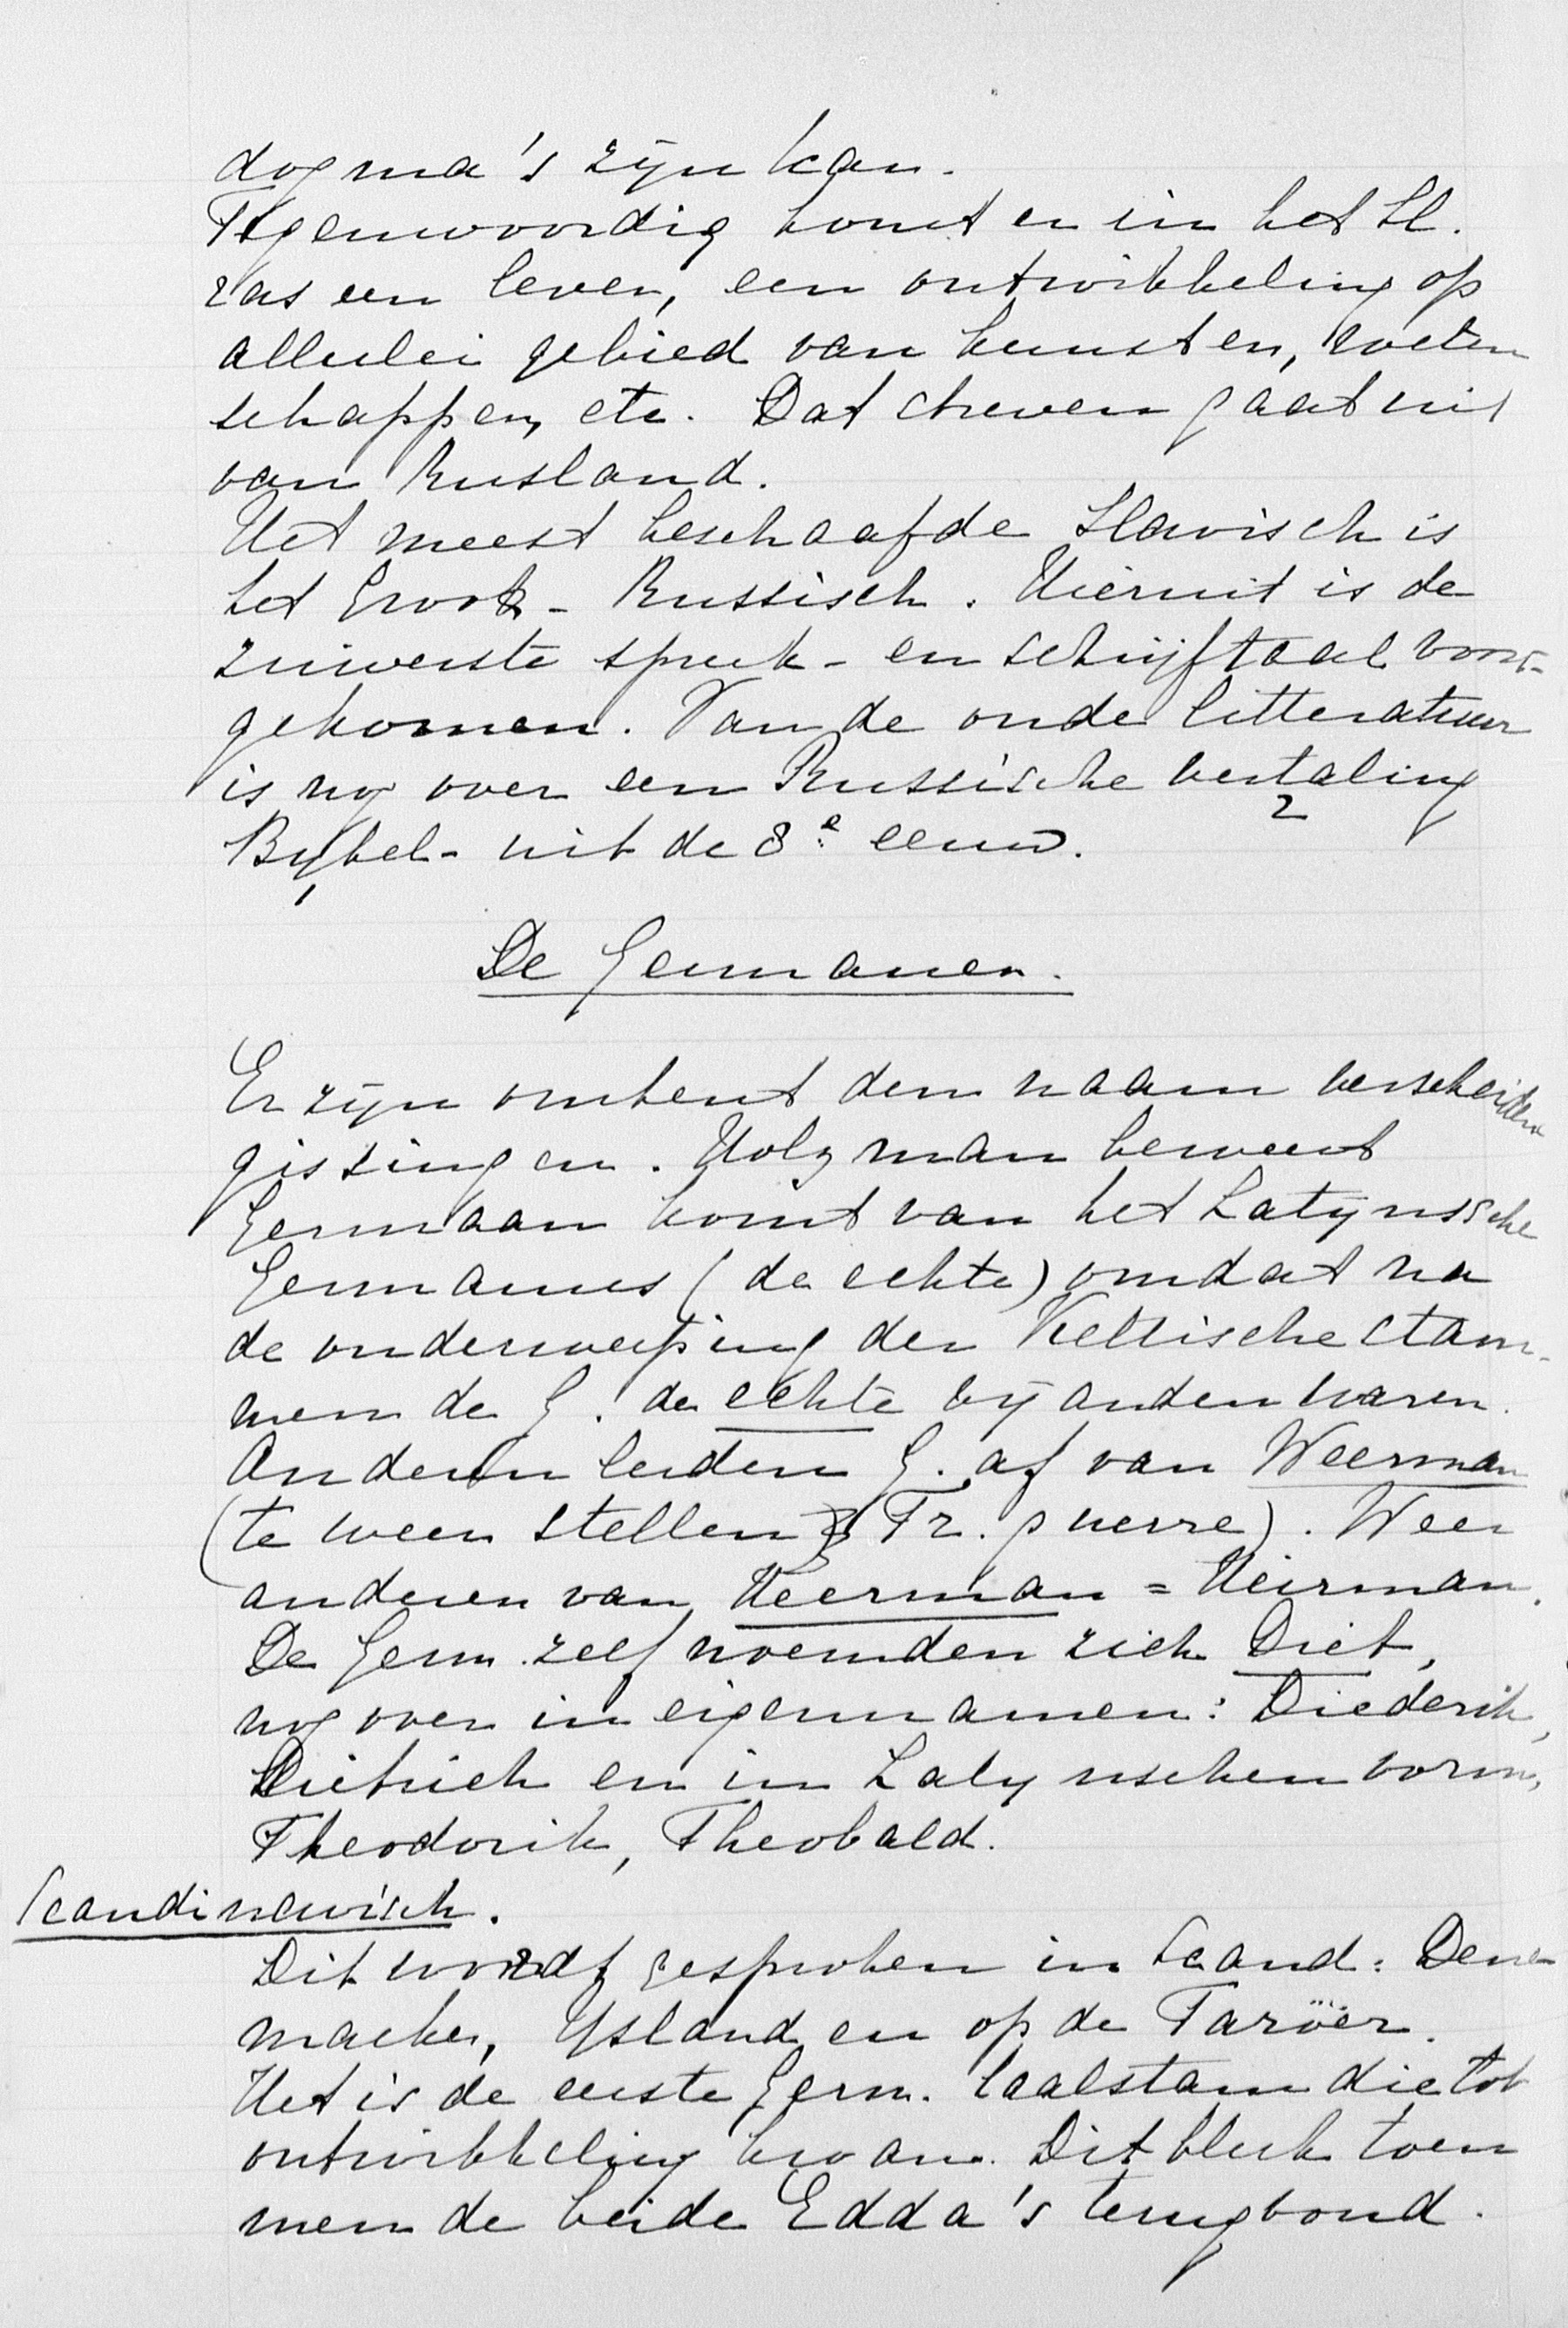 dogma's zijn kan.
Tegenwoordig komt er in het Sl.
ras een leven, een ontwikkeling op
allerlei gebied van kunsten, weten
schappen, etc. Dat streven gaat uit
van Rusland.
Het meest beschaafde Slavisch is
het Groot-Russisch. Hieruit is de
zuiverste spreek- en schrijftaal voort-
gekomen. Van de oude litteratuur
is nog over een Russische vertaling
2
Bijbel- uit de 8e eeuw.
1
De Germanen.
Er zijn omtrent den naam verscheiden
gissingen. Holzman beweert
Germaan komt van het Latijnssche
Germanus (de echte) omdat na
de onderwerping der Keltische stam-
men de G. de echte vijanden waren.
Anderen leiden G. af van Weerman
(te weer stellen Fr. guerre). Weer
anderen van Heerman = Heirman.
De Germ. zelf noemden zich Diet,
nog over in eigennamen: Diederik,
Dietrich en in Latijnschen vorm,
Theodorik, Theobald.
Scandinavisch.
Dit wordt gesproken in Scand: Dene
marken, IJsland en op de Faröer.
Het is de eerste Germ. taalstam die tot
ontwikkeling kwam. Dit bleek toen
men de beide Edda's terugvond.